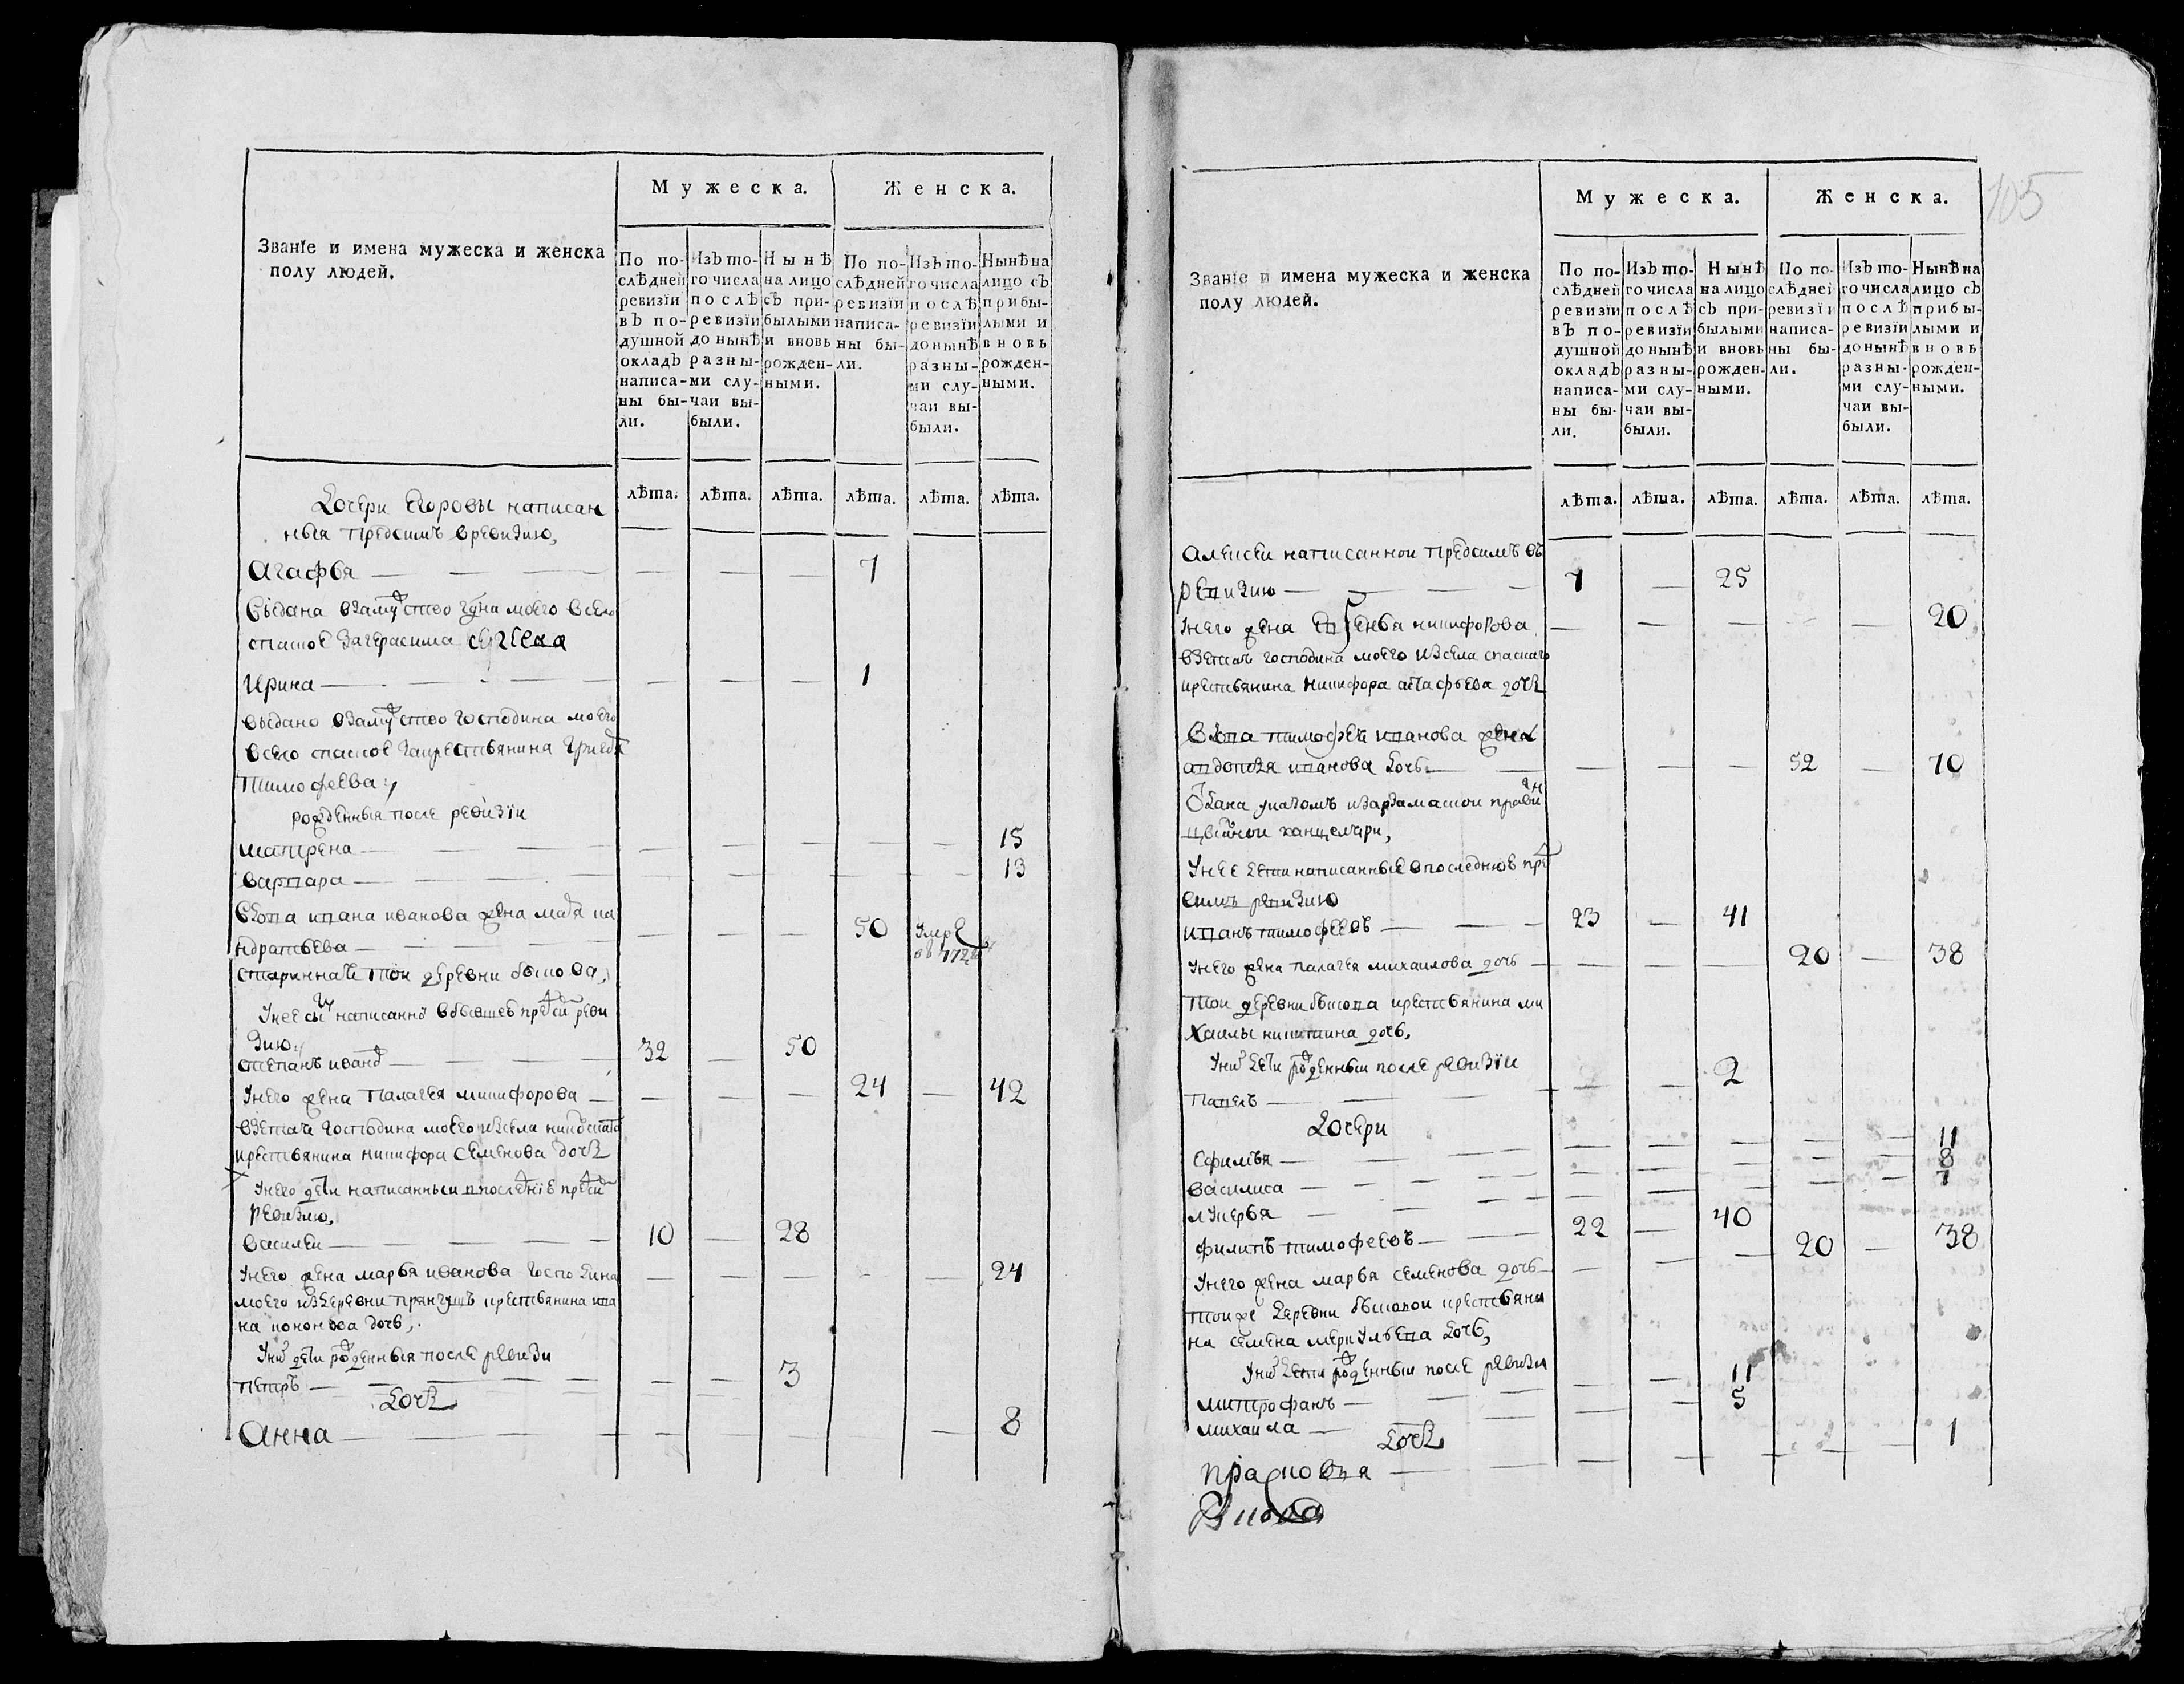 Званїе и имена мужеска и женска
полу людей.
Мужеска.
Женска.
По по-
слѣдней
ревизїи
въ по-
душной
окладъ
написа-
ны бы-
ли.
Изъ то-
го числа
послѣ
ревизїи
до нынѣ
разны-
ми слу-
чаи вы-
были.
Нынѣ
на лицо
съ при-
былыми
и вновь
рожден-
ными.
По по-
слѣдней
ревизїи
написа-
ны бы-
ли.
Изъ то-
го числа
послѣ
ревизїи
до нынѣ
разны-
ми слу-
чаи вы-
были.
Нынѣ на
лицо съ
прибы-
лыми и
вновь
рожден-
ными.
лѣта. лѣта. лѣта. лѣта. лѣта. лѣта.
Дочери Егоровы написан
ныя предсимъ вревизию,
Агафья — — — — — — 7
выдана взамуство гдна моего всело
спаское загерасима
Ирина — — — — — — 1
выдано взамуство господина моего
всело спаское закрестьянина
тимофеева
рожденныя после ревизїи
матрена — — — — — — — — 15
варвара — — — — — — — 13
вдова ивана иванова жена мавра ка
ндратьева — — — — 50 умре в 172
стариннаѣ тои деревни быкова,
унее сынъ написанной вбывшею предсим реви
зию
степанъ иванов — — — 32 — 50
унего жена палагея микифорова — — — — 24 — 42
взетаѣ господина моего изсела
крестьянина никифора семенова дочь
унего дети написанныи впоследнїе предсим
ревизию,
василеи — — — — — 10 — 28
унего жена марья иванова господина — — — — — 24
моего издеревни крестьянина ива
на кононова дочь,
уних дети рожденныя после ревизи
петръ — — — — — — — 3
дочь
Анна — — — — — — — 8
105
Званїе и имена мужеска и женска
полу людей.
Мужеска.
Женска.
По по-
слѣдней
ревизїи
въ по-
душной
окладъ
написа-
ны бы-
ли.
Изъ то-
го числа
послѣ
ревизїи
до нынѣ
разны-
ми слу-
чаи вы-
были.
Нынѣ
на лицо
съ при-
былыми
и вновь
рожден-
ными.
По по-
слѣдней
ревизїи
написа-
ны бы-
ли.
Изъ то-
го числа
послѣ
ревизїи
до нынѣ
разны-
ми слу-
чаи вы-
были.
Нынѣ на
лицо съ
прибы-
лыми и
вновь
рожден-
ными.
лѣта. лѣта. лѣта. лѣта. лѣта. лѣта.
алексеи написаннои предсимъ въ
ревизию — — — — 7 — 25
унего жена никифорова — — — — — 20
взетаѣ господина моего изсела спаскаго
крестьянина никифора астафьева дочь
вдова тимофеи иванова жена
авдотья иванова дочь — — — — — 52 — 70
отдана указомъ изарзамаскои правин
цыалнои канцеляри,
унее дети написанные впоследнюю пред
симъ ревизию
иванъ тимофеевъ — — — 23 — 41
унего жена палагея михаилова дочь — — — — 20 — 38
тои деревни быкова крестьянина ми
хаилы никитина дочь,
уних дети рожденныи после ревизїи
павелъ — — — — — 2
Дочери
ефимья — — — — — — — — 11
василиса — — — — — — — — 8
лукерья — — — — — — — — 7
филипъ тимофеевъ — — — 22 — 40
унего жена марья семенова дочь — — — — 20 — 38
тоиже деревни быковои крестьяни
на семена меркульева дочь,
уних дети рожденныи после ревизи
митрофанъ — — — — — 11
михаила — — — — 5
дочь
прасковья — — — — — — — 1